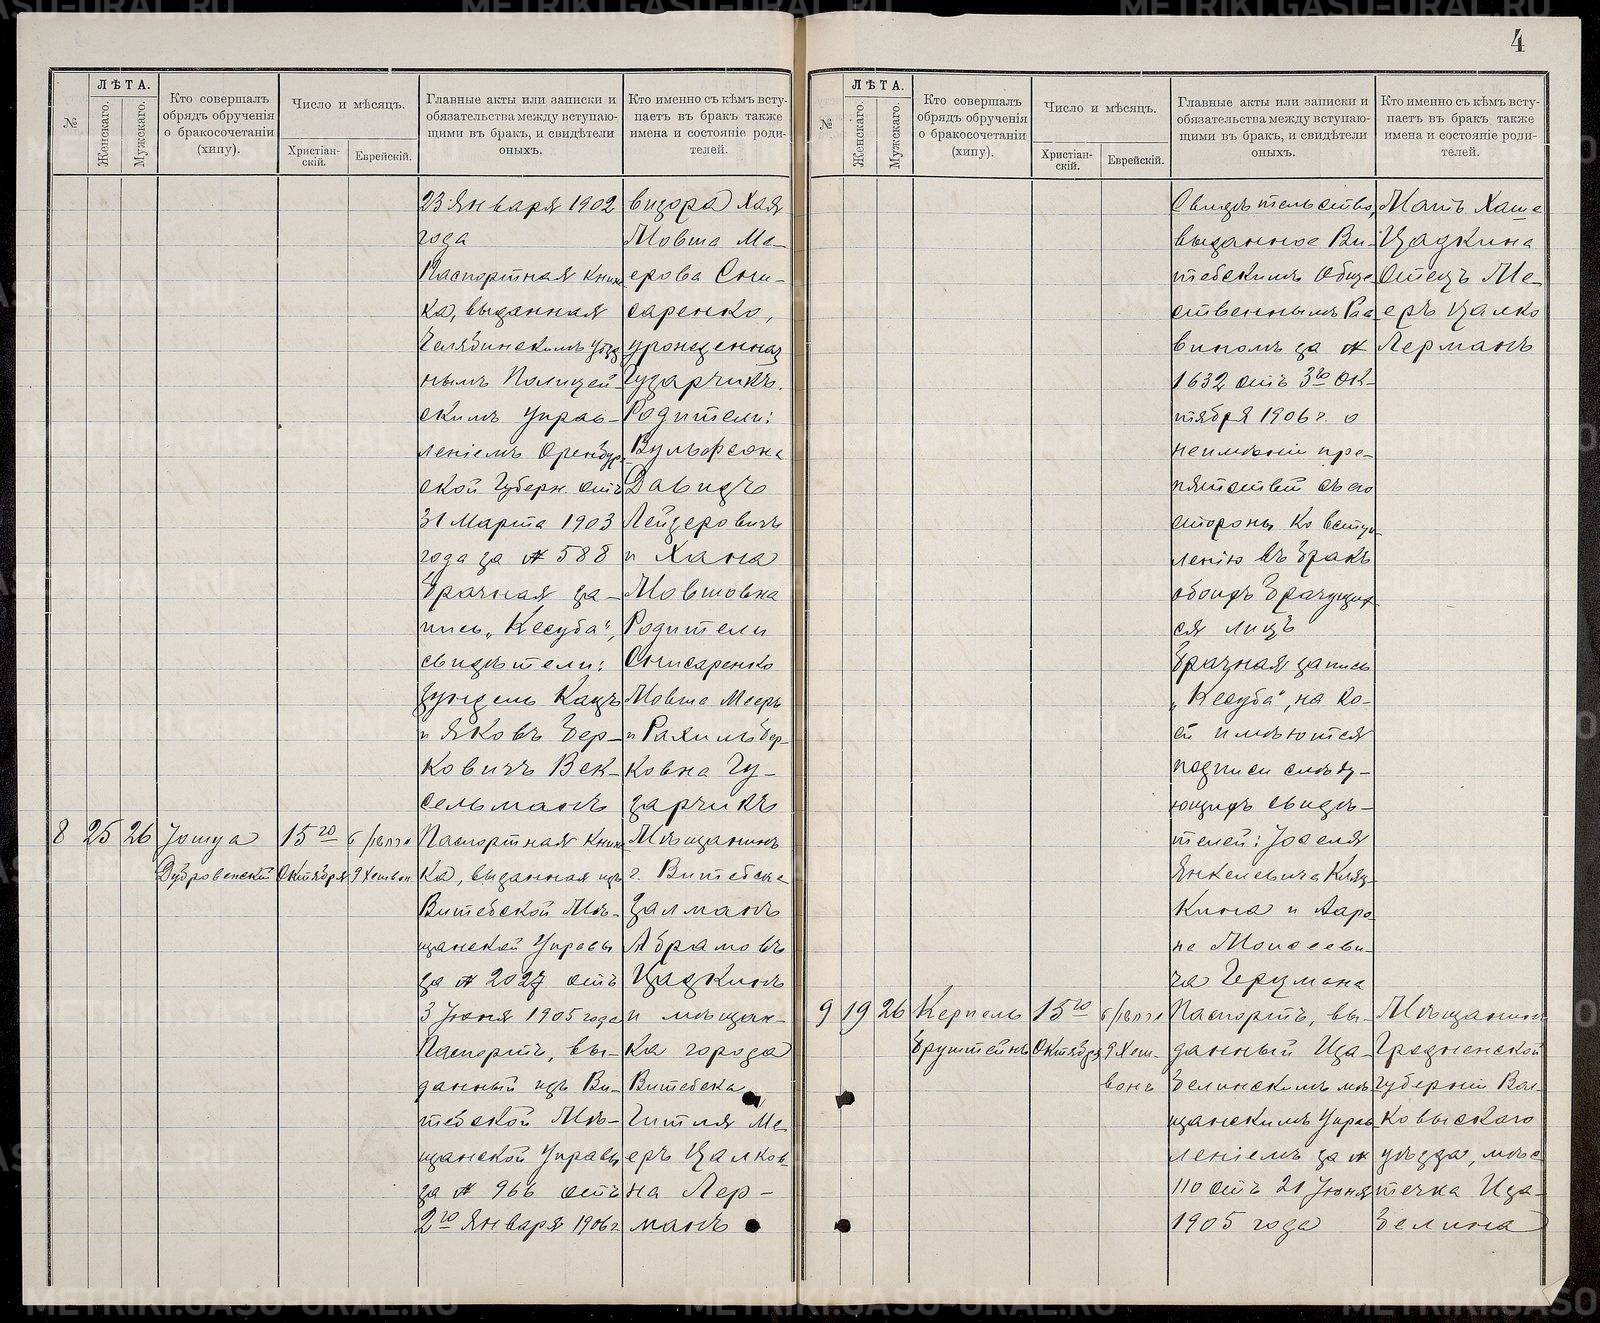 4
№
ЛѢТА.
Женскаго.
Мужскаго.
Кто совершалъ
обрядъ обрученія
о бракосочетаніи
(хипу).
Число и мѣсяцъ.
Христіан-
скій.
Еврейскій.
Главные акты или записки и
обязательства между вступаю-
щими въ бракъ, и свидѣтели
оныхъ.
Кто именно съ кѣмъ всту-
паетъ въ бракъ также
имена и состояніе роди-
телей.
23 Января 1902
года
Паспортная книж
ка, выданная
Челябинскимъ Уѣзд
нымъ Полицей-
скимъ Управ-
леніемъ Оренбург
ской Губерн. отъ
31 Марта 1903
года за № 588
Брачная за-
пись „Кесуба“,
свидѣтели:
Зундель Кацъ
и Яковъ Бер-
ковичъ Век-
сельманъ
визора Хая
Мовша Ме-
ерова Сни-
саренко,
урожденная
Гузарчикъ.
Родители:
Вульфсона
Давидъ
Лейзеровичъ
и Хана
Мовшовна
Родители
Снисаренко
Мовша Мееръ
и Рахиль Бер-
ковна Гу-
зарчикъ
8
25
26
Іошуа
Дубровенскій
15го
Октября
9 Хешвон
Паспортная книж
ка, выданная изъ
Витебской Мѣ-
щанской Управы
за № 2027 отъ
3 Іюня 1905 года
Паспортъ, вы-
данный изъ Ви-
тебской Мѣ-
щанской Управы
за № 966 отъ
2го Января 1906 г
Мѣщанинъ
г. Витебска
Залманъ
Абрамовъ
Цадкинъ
и мѣщан-
ка города
Витебска
Гитля Ме
еръ Цалков-
на Лер-
манъ
№
ЛѢТА.
Женскаго.
Мужскаго.
Кто совершалъ
обрядъ обрученія
о бракосочетаніи
(хипу).
Число и мѣсяцъ.
Христіан-
скій.
Еврейскій.
Главные акты или записки и
обязательства между вступаю-
щими въ бракъ, и свидѣтели
оныхъ.
Кто именно съ кѣмъ всту-
паетъ въ бракъ также
имена и состояніе роди-
телей.
Свидѣтельство,
выданное Ви-
тебскимъ Обще
ственнымъ Рав
виномъ за №
1632 отъ 3го Ок-
тября 1906 г. о
неимѣніи пре-
пятствій съ его
стороны ко всту-
ленію въ бракъ
обоихъ брачущих
ся лицъ
Брачная запись
„Кесуба“, на ко-
ей имѣются
подписи слѣду-
ющихъ свидѣ-
телей: Іоселя
Янкелевича Кляц-
кина и Ааро
на Моисееви-
ча Герцмана
Мать Хаше
Цадкина
Отецъ Ме-
еръ Цалко
Лерманъ
9
19
26
Керпель
Бруштейнъ
15го
Октября
9 Хеш-
вонъ
Паспортъ, вы-
данный Иза-
белинскимъ мѣ
щанскимъ Управ
леніемъ за №
110 отъ 21 Іюня
1905 года
Мѣщанинъ
Гродненской
губерніи Вол-
ковыскаго
уѣзда, мѣс
течка Иза-
белина
METRIKI.GASU-URAL.RU